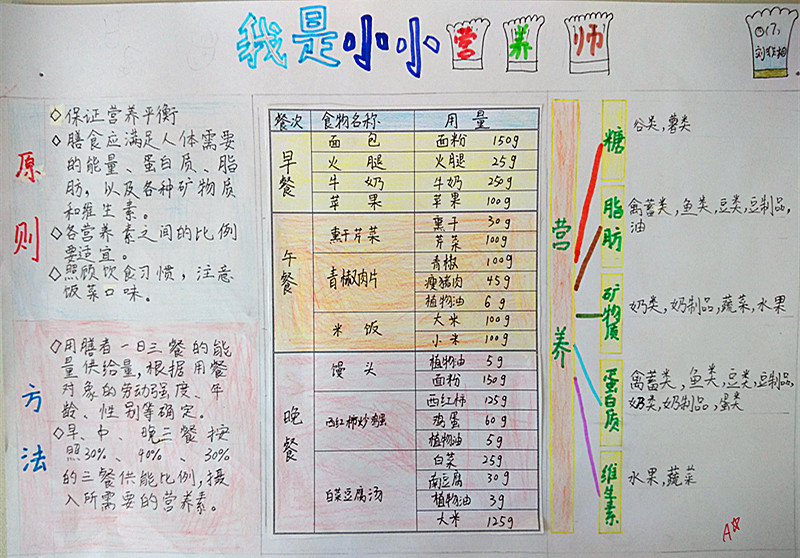 我是小小营养师
原则
◇保证营养平衡
◇膳食应满足人体需要
的能量、蛋白质、脂
肪，以及各种矿物质
和维生素。
◇各营养素之间的比例
要适宜。
◇照顾饮食习惯，注意
饭菜口味。
方法
◇用膳者一日三餐的能
量供给量，根据用餐
对象的劳动强度、年
龄、性别等确定。
◇早、中、晚三餐按
照30%、40%、30%
的三餐供能比例，摄
入所需要的营养素。
餐次 食物名称 用量
早餐
面包 面粉 150g
火腿 火腿 25g
牛奶 牛奶 250g
苹果 苹果 100g
午餐
熏干芹菜 熏干 30g
芹菜 100g
青椒肉片 青椒 100g
瘦猪肉 45g
植物油 6g
米饭 大米 100g
小米 100g
晚餐
馒头 植物油 5g
面粉 150g
西红柿炒鸡蛋 西红柿 125g
鸡蛋 60g
植物油 5g
白菜豆腐汤 白菜 25g
南豆腐 30g
植物油 3g
大米 125g
营养
糖 谷类，薯类
脂肪 禽畜类，鱼类，豆类，豆制品，
油
矿物质 奶类，奶制品，蔬菜，水果
蛋白质 禽畜类，鱼类，豆类，豆制品，
奶类，奶制品，蛋类
维生素 水果，蔬菜
A☆